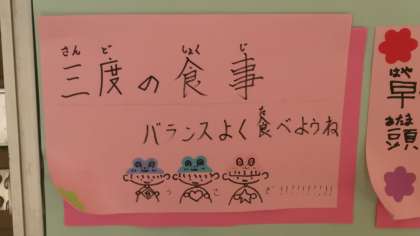 さんど しょくじ
三度の食事
た
バランスよく食べようね
はや
早
あたま
頭